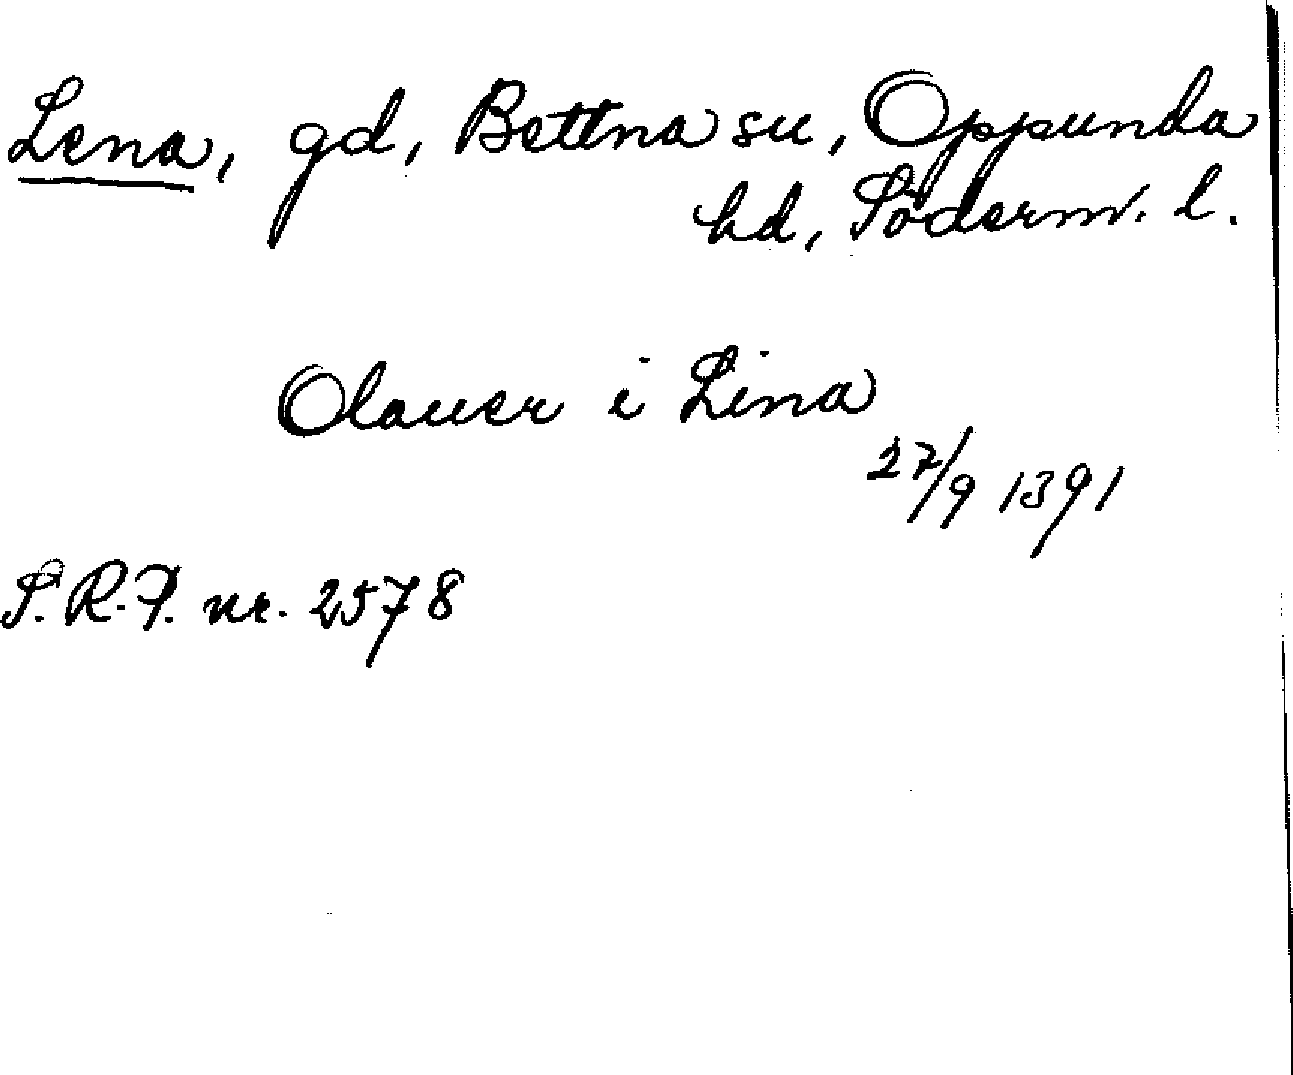 Lena, gd, Bettna sn, Oppunda
hd, Söderm. l.
Olauer i Lina
27/9 1391
S.R.P. nr. 2578